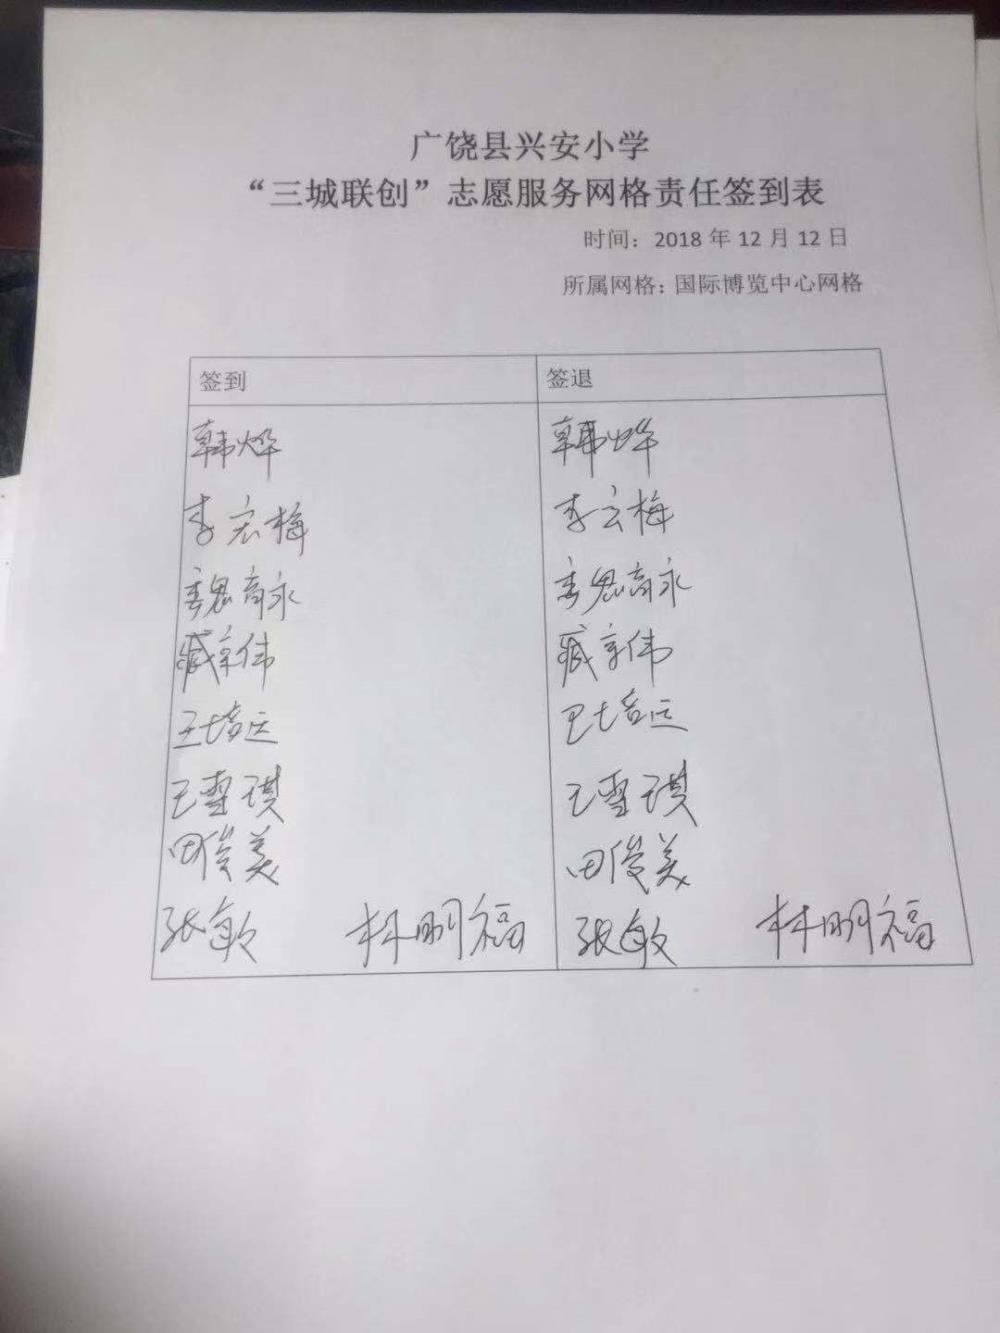 广饶县兴安小学
“三城联创”志愿服务网格责任签到表
时间：2018 年 12 月 12 日
所属网格：国际博览中心网格
签到 签退
韩烨 韩烨
李宏梅 李云梅
魏高永 魏高永
臧京伟 臧京伟
王培运 王培运
王雪琪 王雪琪
田俊美 田俊美
张敏 林明福 张敏 林明福